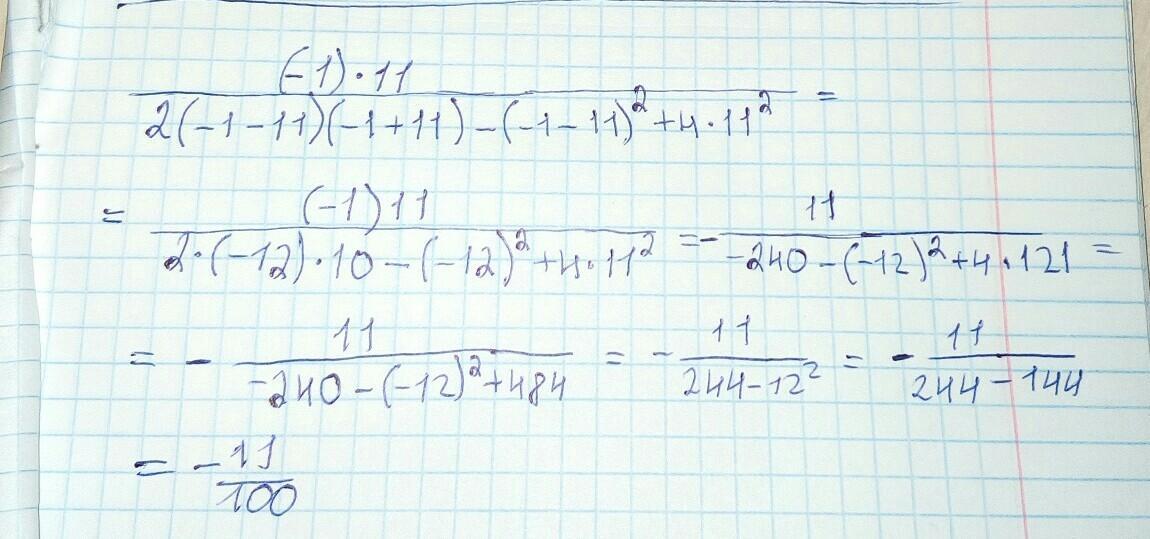 ((-1)·11)/(2(-1-11)(-1+11)-(-1-11)²+4·11²) =
= ((-1)11)/(2·(-12)·10-(-12)²+4·11²) = - 11/(-240-(-12)²+4·121) =
= - 11/(-240-(-12)²+484) = - 11/(244-12²) = - 11/(244-144)
= - 11/100